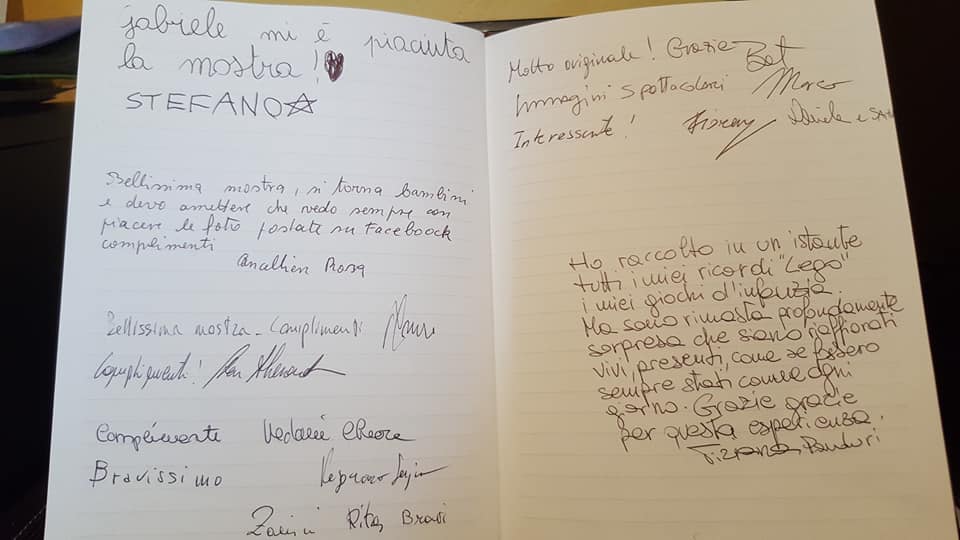 gabriele mi è piaciuta
la mostra!
STEFANO
Bellissima mostra, si torna bambini
e devo amettere che vedo sempre con
piacere le foto postate su Faceboock
complimenti
Rosa
Bellissima mostra - Complimenti
Complimenti!
Complimente
Bravissimo
Zanini Rita Bravi
Molto originale! Grazie
Immagini spettacolari Marco
Interessante! Daniele e
Ho raccolto in un istante
tutti i miei ricordi "Lego"
i miei giochi d'infanzia.
Ma sono rimasta profondamente
sorpresa che siano riaffiorati
vivi, presenti, come se fossero
sempre stati come ogni
giorno. Grazie grazie
per questa esperienza.
Tiziana